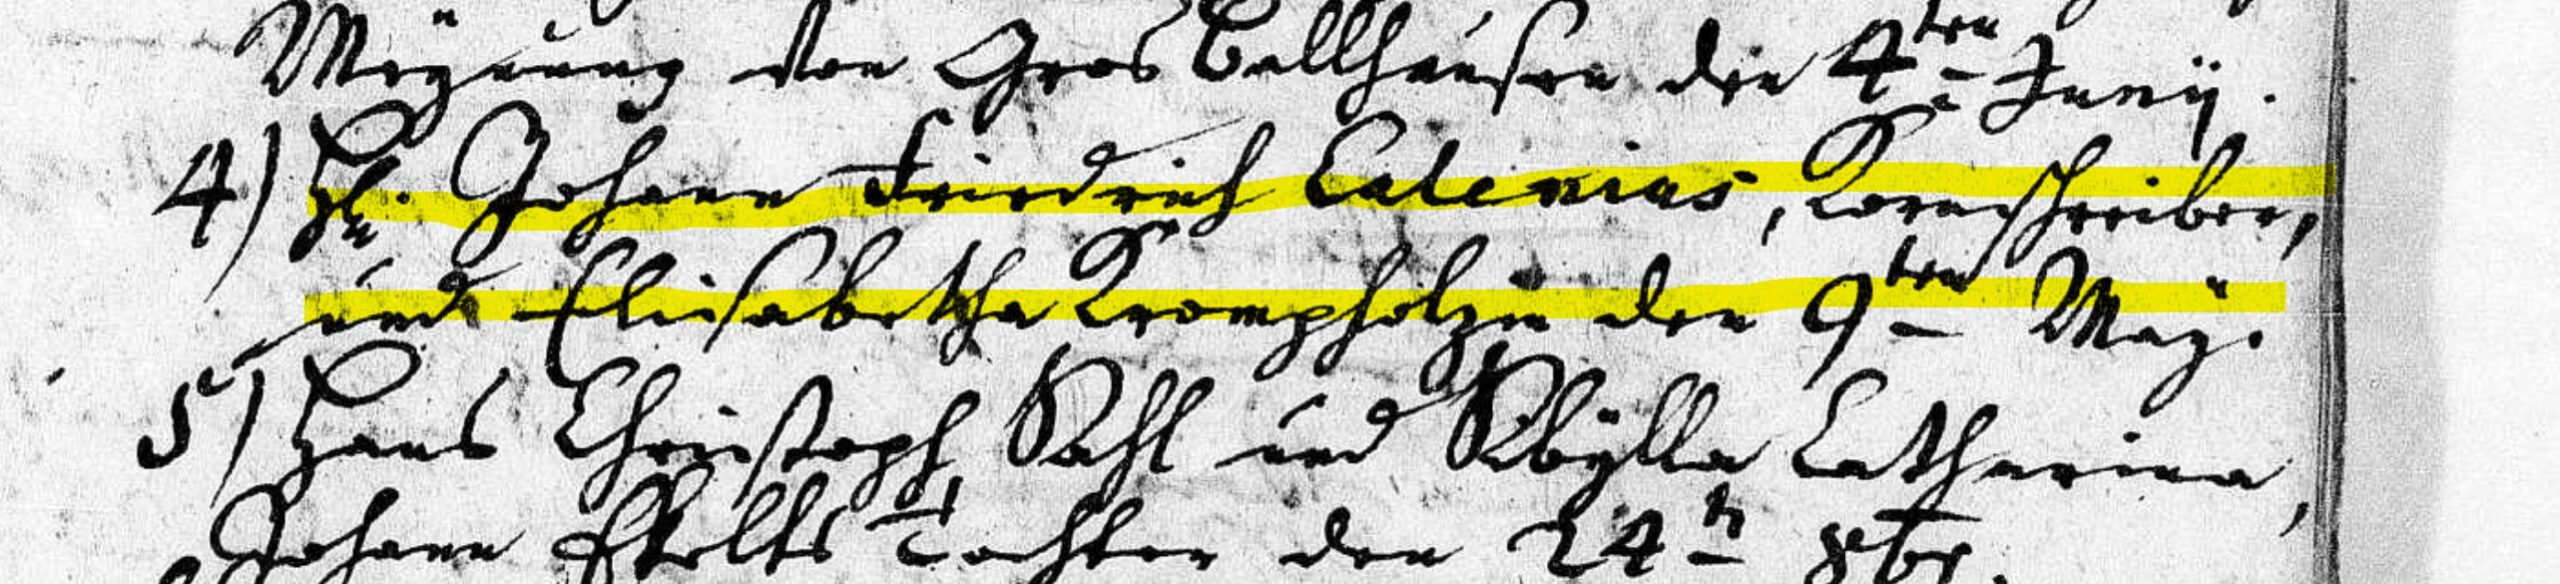 Meÿnung von Gros Ballhausen den 4ten Junÿ.
4) Hr. Johann Friedrich Calenius, Kornschreiber,
und Elisabetha Krompholzin den 9ten Maÿ.
5) Hans Christoph Kahl und Sibÿlla Catharina,
Johann Tochter den 24t 8br.